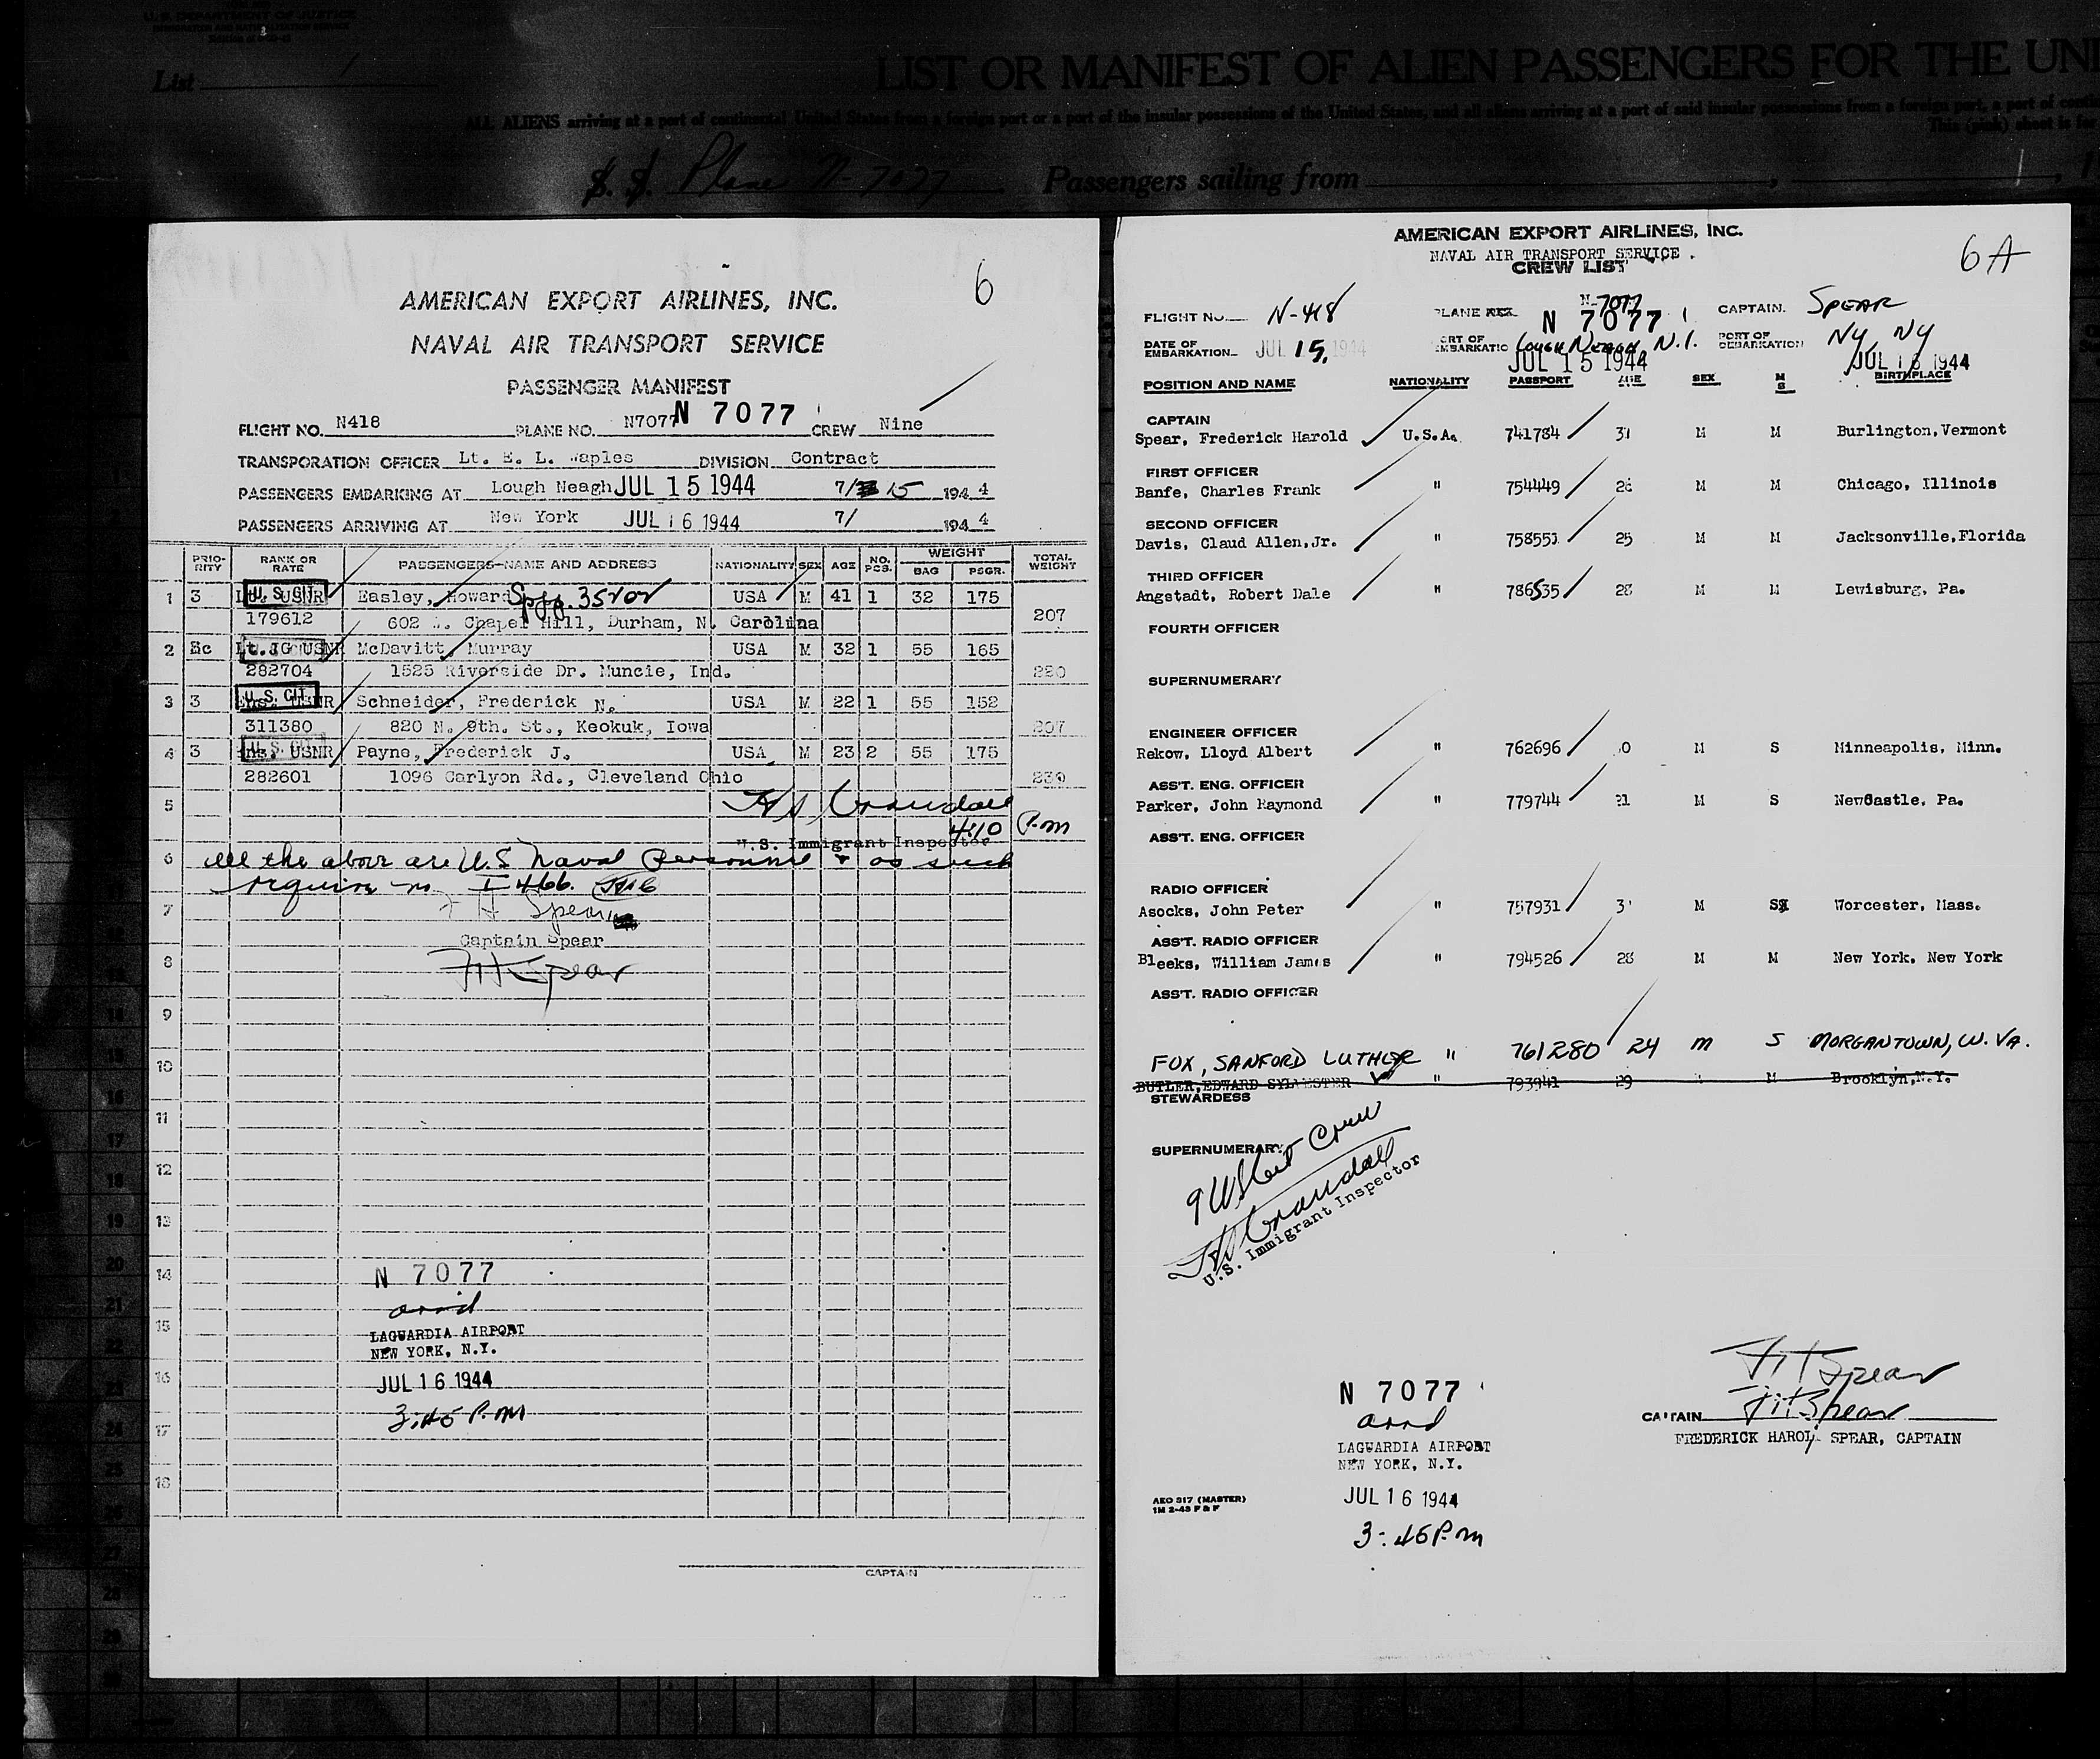 U.S. DEPARTMENT OF JUSTICE
List 1
LIST OR MANIFEST OF ALIEN PASSENGERS FOR THE UNI
ALL ALIENS arriving at a port of continental United States from a foreign port or a port of the insular possessions of the United States, and all aliens arriving at a port of said insular possessions from a foreign port, a port of conti
This (pink) sheet is for
S. S. Plane N-7077 Passengers sailing from
6
AMERICAN EXPORT AIRLINES, INC.
NAVAL AIR TRANSPORT SERVICE
PASSENGER MANIFEST
FLIGHT NO. N418 PLANE NO. N7077 N 7077 CREW Nine
TRANSPORATION OFFICER Lt. E. L. Waples DIVISION Contract
PASSENGERS EMBARKING AT Lough Neagh JUL 15 1944 7/ 15 1944
PASSENGERS ARRIVING AT New York JUL 16 1944 7/ 1944
PRIO-RITY RANK OR RATE PASSENGERS-NAME AND ADDRESS NATIONALITY SEX AGE NO. PCS. WEIGHT BAG PSGR. TOTAL WEIGHT
1 3 U.S. CIT USNR Easley, Howard USA M 41 1 32 175
179612 602 Chapel Hill, Durham, N. Carolina 207
2 Sc Lt. JG USNR McDavitt, Murray USA M 32 1 55 165
282704 1525 Riverside Dr. Muncie, Ind. 220
3 3 U.S. CIT Ens. USNR Schneider, Frederick N. USA M 22 1 55 152
311380 820 N. 9th. St., Keokuk, Iowa 207
4 3 U.S. CIT Ens. USNR Payne, Frederick J. USA M 23 2 55 175
282601 1096 Carlyon Rd., Cleveland Ohio 230
5 Crandall
4:10 P.m
U.S. Immigrant Inspector
6 all the above are U.S Naval Personnel & as such
require no I 466.
7 F H Spear
Captain Spear
8 F H Spear
9
10
11
12
13
14 N 7077
arrd
15 LAGUARDIA AIRPORT
NEW YORK, N.Y.
16 JUL 16 1944
3:45 P.m
17
18
CAPTAIN
6A
AMERICAN EXPORT AIRLINES, INC.
NAVAL AIR TRANSPORT SERVICE
CREW LIST
FLIGHT NO. N-418 PLANE N-7077 N 7077 CAPTAIN. SPEAR
DATE OF EMBARKATION JUL 15, 1944 PORT OF EMBARKATION Lough Neagh, N.I. JUL 15 1944 PORT OF DEBARKATION NY, NY JUL 16 1944
POSITION AND NAME NATIONALITY PASSPORT AGE SEX M S BIRTHPLACE
CAPTAIN
Spear, Frederick Harold U.S.A. 741784 31 M M Burlington, Vermont
FIRST OFFICER
Banfe, Charles Frank " 754449 M M Chicago, Illinois
SECOND OFFICER
Davis, Claud Allen, Jr. " 758551 25 M M Jacksonville, Florida
THIRD OFFICER
Angstadt, Robert Dale " 786535 28 M M Lewisburg, Pa.
FOURTH OFFICER
SUPERNUMERARY
ENGINEER OFFICER
Rekow, Lloyd Albert " 762696 M S Minneapolis, Minn.
ASS'T. ENG. OFFICER
Parker, John Raymond " 779744 21 M S NewCastle, Pa.
ASS'T. ENG. OFFICER
RADIO OFFICER
Asocks, John Peter " 757931 M S Worcester, Mass.
ASS'T. RADIO OFFICER
Bleeks, William James " 794526 28 M M New York, New York
ASS'T. RADIO OFFICER
FOX, SANFORD LUTHER " 761280 24 m S MORGANTOWN, W. VA.
BUTLER, EDWARD SYLVESTER " 793941 29 M Brooklyn, N.Y.
STEWARDESS
SUPERNUMERARY
9 USCit Crew
Crandall
U.S. Immigrant Inspector
F H Spear
CAPTAIN F H Spear
FREDERICK HAROLD SPEAR, CAPTAIN
N 7077
arrd
LAGUARDIA AIRPORT
NEW YORK, N.Y.
JUL 16 1944
3:45 P.m
AEO 317 (MASTER)
1M 2-43 P & F